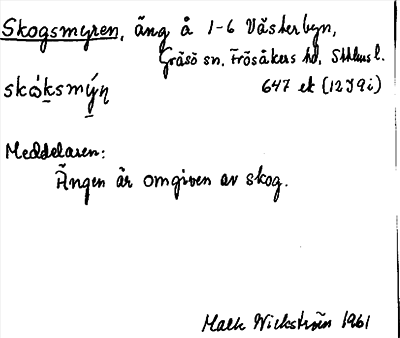 Skogsmyren, äng å 1-6 Västerbyn,
Gräsö sn, Frösåkers hd, Sthlms l.
skὼksmýn̥ 647 ek (12I9i)
Meddelaren:
Ängen är omgiven av skog.
Wickström 1961